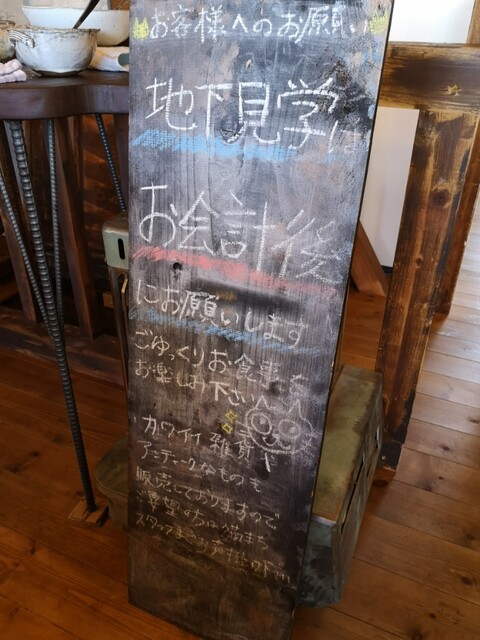 お客様へのお願い
地下見学は
お会計後
にお願いします
ごゆっくりお食事を
お楽しみ下さい
カワイイ雑貨や
アンティークなものも
販売しておりますので
ご希望の方は
スタッフまで